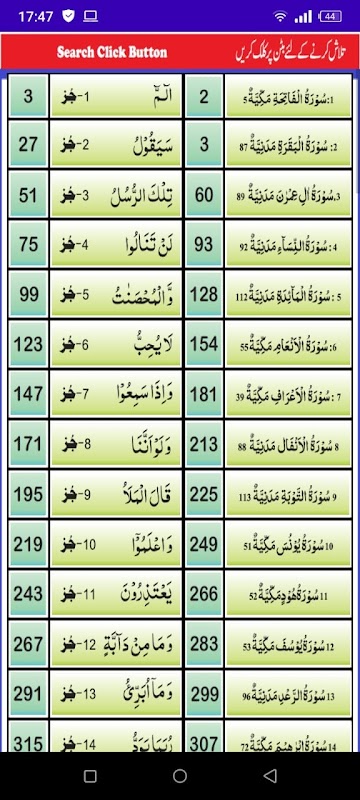 17:47 44
Search Click Button تلاش کرنے کے لئے بٹن پر کلک کریں
3 جُز -1 الٓمّٓ 2 1: سُوْرَةُ الْفَاتِحَةِ مَكِّيَّةٌ 5
27 جُز -2 سَيَقُوْلُ 3 2: سُوْرَةُ الْبَقَرَةِ مَدَنِيَّةٌ 87
51 جُز -3 تِلْكَ الرُّسُلُ 60 3. سُوْرَةُ اٰلِ عِمْرٰنَ مَدَنِيَّةٌ 89
75 جُز -4 لَنْ تَنَالُوا 93 4: سُوْرَةُ النِّسَآءِ مَدَنِيَّةٌ 92
99 جُز -5 وَّالْمُحْصَنٰتُ 128 5: سُوْرَةُ الْمَآئِدَةِ مَدَنِيَّةٌ 112
123 جُز -6 لَا يُحِبُّ 154 6: سُوْرَةُ الْاَنْعَامِ مَكِّيَّةٌ 55
147 جُز -7 وَاِذَا سَمِعُوْا 181 7: سُوْرَةُ الْاَعْرَافِ مَكِّيَّةٌ 39
171 جُز -8 وَلَوْ اَنَّنَا 213 8 سُوْرَةُ الْاَنْفَالِ مَدَنِيَّةٌ 88
195 جُز -9 قَالَ الْمَلَاُ 225 9 سُوْرَةُ التَّوْبَةِ مَدَنِيَّةٌ 113
219 جُز -10 وَاعْلَمُوْٓا 249 10 سُوْرَةُ يُوْنُسَ مَكِّيَّةٌ 51
243 جُز -11 يَعْتَذِرُوْنَ 266 11 سُوْرَةُ هُوْدٍ مَكِّيَّةٌ 52
267 جُز -12 وَمَا مِنْ دَآبَّةٍ 283 12 سُوْرَةُ يُوْسُفَ مَكِّيَّةٌ 53
291 جُز -13 وَمَآ اُبَرِّئُ 299 13 سُوْرَةُ الرَّعْدِ مَدَنِيَّةٌ 96
315 جُز -14 رُبَمَا يَوَدُّ 307 14 سُوْرَةُ اِبْرٰهِيْمَ مَكِّيَّةٌ 72